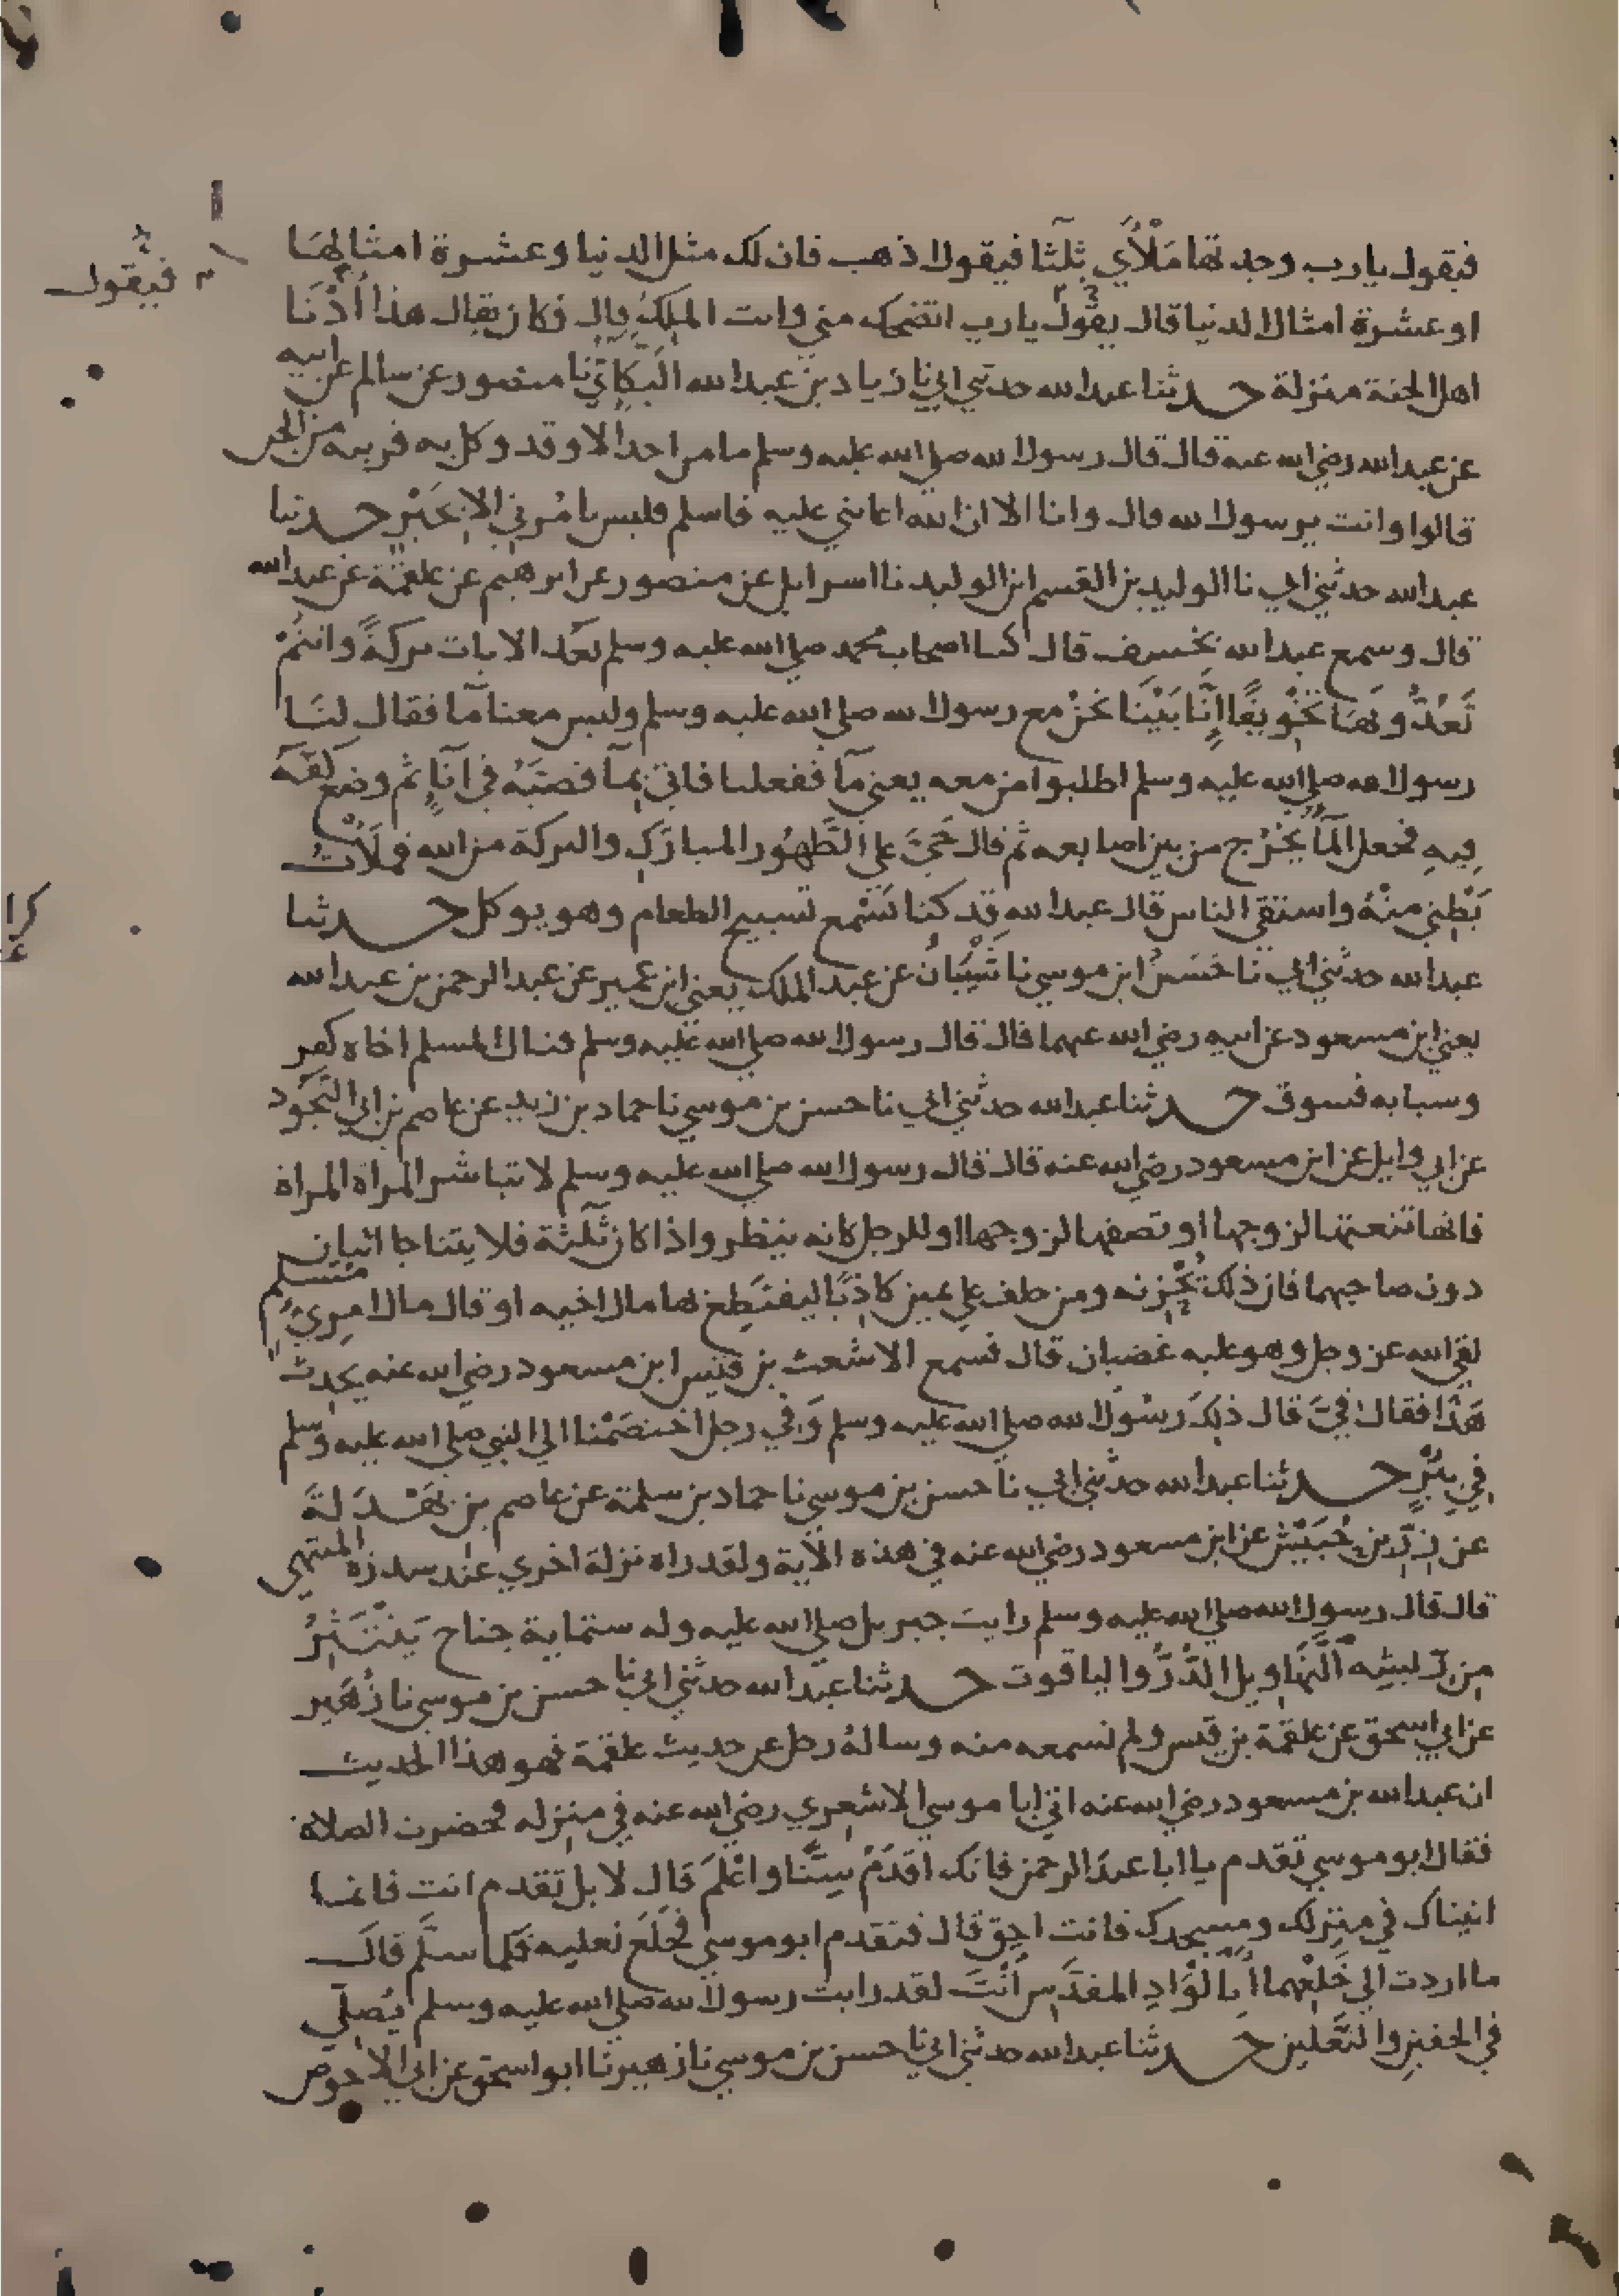 فيقول يا رب وجدتها مَلْأَي ثلثا فيقول اذهب فان لك مثل الدنيا وعشرة امثالها
فيقول
او عشرة امثال الدنيا قال يقول يا رب اتضحك مني وانت الملك قال فكان يقال هذا أَدْنَا
اهل الجنة منزلة حدثنا عبد الله حدثني ابي نا زياد بن عبد الله البَكّائي نا منصور عن سالم عن ابيه
عن عبد الله رضي الله عنه قال قال رسول الله صلي الله عليه وسلم ما من احد الا وقد وكل به قرينه من الجن
قالوا وانت يرسول الله قال وانا الا ان الله اعانني عليه فاسلم فليس يامُرني الا بِخَيْر حدثنا
عبد الله حدثني ابي نا الوليد بن القسم ابن الوليد نا اسرايل عن منصور عن ابرهيم عن علقمة عن عبد الله
قال وسمع عبد الله بخسف قال كنا اصحاب محمد صلي الله عليه وسلم نعُد الايات بركةً وانتُمْ
تَعُدُّونها تَخْويفًا إنّا بَيْنَا نحْن مع رسول الله صلي الله عليه وسلم وليس معنا مآ فقال لنَا
رسول الله صلي الله عليه وسلم اطلبوا من معه يعني مآ ففعلنا فاتي بمآ فصبَّهُ في انَآءٍ ثم وضع كفَّهُ
فِيهِ فجعل المآءُ يخْرُج من بين اصابعه ثم قال حَيَّ علي الطَّهُور المبارَكِ والبركة من الله فملَأْتُ
بَطْنِي منْهُ واستقي الناس قال عبد الله قد كنا نَسْمع تسبيح الطعام وهو يوكل حدثنا
عبد الله حدثني ابي نا حَسَنُ ابن موسي نا شَيْبَانُ عن عبد الملك يعني ابن عمير عن عبد الرحمن بن عبد الله
يعني ابن مسعود عن ابيه رضي الله عنهما قال قال رسول الله صلي الله عليه وسلم قتال المسلم اخاه كفر
وسبابه فسوق حدثنا عبد الله حدثني ابي نا حسن بن موسي نا حماد بن زيد عن عاصم بن ابي النَّجُود
عن ابي وايل عن ابن مسعود رضي الله عنه قال قال رسول الله صلي الله عليه وسلم لا تباشر المراة المراة
فانها تنعتها لزوجها او تصفها لزوجها او للرجل كانه ينظر واذا كان ثلثة فلا يتناجا اثنان
دون صاحبهما فان ذلك يُحْزِنه ومن حلف علي عين كاذبًا ليقتَطِع بها مال اخيه او قال مال امِريءٍ مسلم
لقي الله عز وجل وهو عليه غضبان قال فسمع الاشعث بن قيس ابن مسعود رضي الله عنه يحدث
هَذَا فقال فيَّ قال ذلِكَ رسُولُ الله صلي الله عليه وسلم وَفي رجل اختصَمْنا الي النبي صلي الله عليه وسلم
فِي بِئْرٍ حدثنا عبد الله حدثني ابي نا حسن بن موسي نا حماد بن سلمة عن عاصم بن بَهْدَلةَ
عن زِرِّ بن حُبَيْش عن ابن مسعود رضي الله عنه في هذه الآية ولقد راه نزلة اخري عند سدرة المنتهي
قال قال رسول الله صلي الله عليه وسلم رايت جبريل صلي الله عليه وله ستماية جناح يَنْتَثِرُ
مِن رِيشِه التَّهَاويل الدُّرُّ والياقوت حدثنا عبد الله حدثني ابي نا حسن بن موسي نا زُهَير
عن ابي اسحق عن علقمة بن قيس ولم نسمعه منه وسالهُ رجل عن حديث علقمة فهو هذا الحديث
ان عبد الله بن مسعود رضي الله عنه اتي ابا موسي الاشعري رضي الله عنه في منزله فحضرت الصلاة
فقال ابو موسي تقدم يا ابا عبد الرحمن فانك اقدَمُ سِنًّا واعْلَمَ قال لا بل تقدم انت فانما
اتيناك في منزلك ومسجدك فانت احق قال فتقدم ابو موسي فخَلَع نعليه فلما سلَّم قالَ
ما اردت الي خَلْعِهما أبالْوَادِ المقدَّسِ أنْتَ لقد رايت رسول الله صلي الله عليه وسلم يُصلّي
في الخفين والنَّعلين حدثنا عبد الله حدثني ابي نا حسن بن موسي نا زهير نا ابو اسحق عن ابي الاحوص